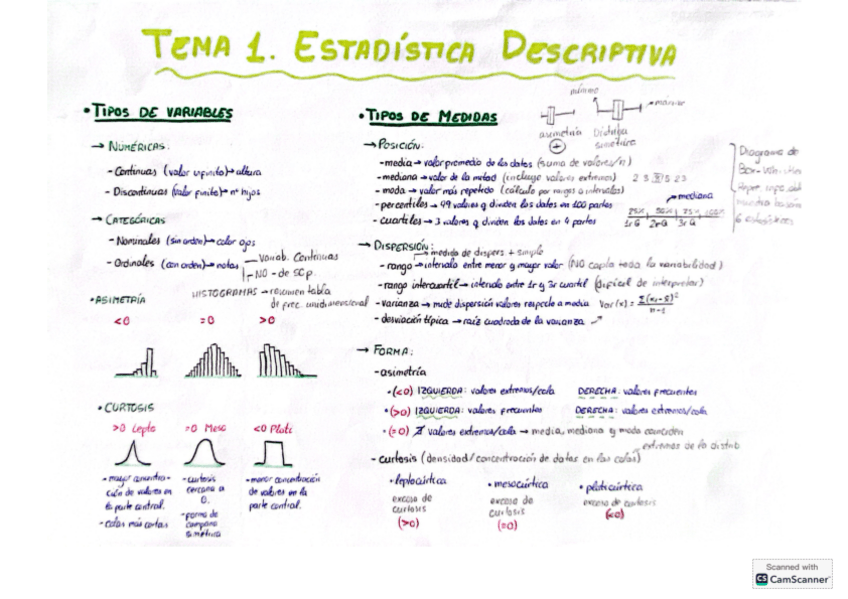 TEMA 1. ESTADÍSTICA DESCRIPTIVA
• TIPOS DE VARIABLES
→ NUMÉRICAS:
- Continuas (valor infinito) → altura
- Discontinuas (valor finito) → nº hijos
→ CATEGÓRICAS
- Nominales (sin orden) → color ojos
- Ordinales (con orden) → notas
Variab. Continuas
NO - de
HISTOGRAMAS → resumen tabla
de frec. unidimensional
• ASIMETRÍA
<0 =0 >0
• CURTOSIS
>0 Lepto =0 Meso <0 Plati
- mayor concentra-
ción de valores en
la parte central.
- colas más cortas
- curtosis
cercana a
0.
- forma de
campana
simétrica
- menor concentración
de valores en la
parte central.
• TIPOS DE MEDIDAS
→ POSICIÓN:
- media → valor promedio de los datos (suma de valores/n)
- mediana → valor de la mitad (incluye valores extremos)
- moda → valor más repetido (cálculo por rangos o intervalos)
- percentiles → 99 valores q dividen los datos en 100 partes
- cuartiles → 3 valores q dividen los datos en 4 partes
mediana
25% 50% 75% 100%
asimetría
+
Diagrama de
→ DISPERSIÓN:
medida de dispers + simple
- rango → intervalo entre menor y mayor valor (NO capta toda la variabilidad)
- rango intercuartil → intervalo entre 1r y 3r cuartil (difícil de interpretar)
- varianza → mide dispersión valores respecto a media
- desviación típica → raíz cuadrada de la varianza
→ FORMA:
- asimetría
• (<0) IZQUIERDA: valores extremos/cola DERECHA: valores frecuentes
• (>0) IZQUIERDA: valores frecuentes DERECHA: valores extremos/cola
• (=0) ∄ valores extremos/cola → media, mediana y moda coinciden
extremos de la distrib
- curtosis (densidad/concentración de datos en las colas)
• leptocúrtica
exceso de
curtosis
(>0)
• mesocúrtica
exceso de
curtosis
(=0)
• platicúrtica
exceso de curtosis
(<0)
Scanned with
CS CamScanner